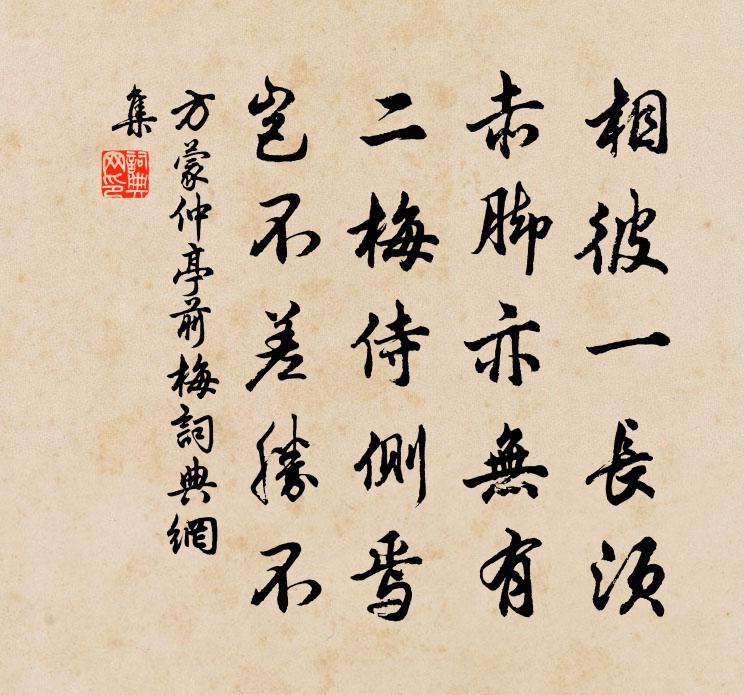 相彼一長須
赤脚亦無有
二梅侍側焉
豈不差勝不
方蒙仲亭前梅詞典網
集
詞典网印